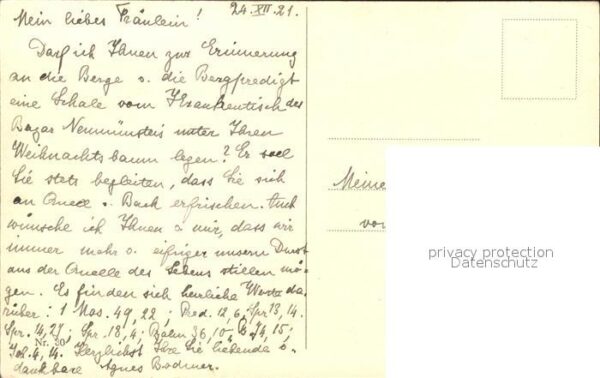 24. XII. 21.
Mein liebes Fräulein!
Darf ich Ihnen zur Erinnerung
an die Berge u. die Bergpredigt
eine Schale vom Krankentisch des
Bazar Neumünsters unter Ihren
Weihnachtsbaum legen? Er soll
Sie stets begleiten, dass Sie sich
an Quell u. Bach erfrischen. Auch
wünsche ich Ihnen u. mir, dass wir
immer mehr u. eifriger unsern Durst
aus der Quelle des Lebens stillen mö-
gen. Es finden sich herrliche Worte da-
rüber: 1 Mos. 49, 22; Pred. 12, 6; Spr. 13, 14.
Spr. 14, 27; Spr. 18, 4; Psalm 36, 10; 84, 15;
Joh. 4, 14. Herzlichst Ihre Sie liebende u.
dankbare Agnes Bodmer.
Nr. 30
Meine
von
privacy protection
Datenschutz